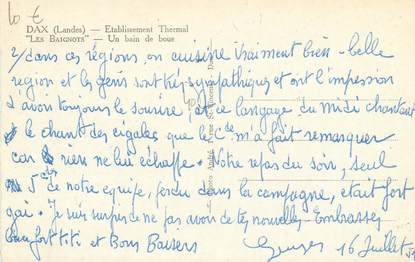 10 €
DAX (Landes) — Etablissement Thermal
"LES BAIGNOTS" — Un bain de boue
2/ dans ces régions, on cuisine vraiment bien - belle
region et les gens sont très sympathiques et ont l'impression
d'avoir toujours le sourire, et ce langage du midi chantant
le chant des cigales que le m'a fait remarquer
car rien ne lui échappe. Notre repas du soir, seul
de notre equipe, perdu dans la campagne, etait fort
gai. Je suis surpris de ne pas avoir de tes nouvelles - Embrasses
bien fort titi et Bons Baisers
Georges 16 Juillet